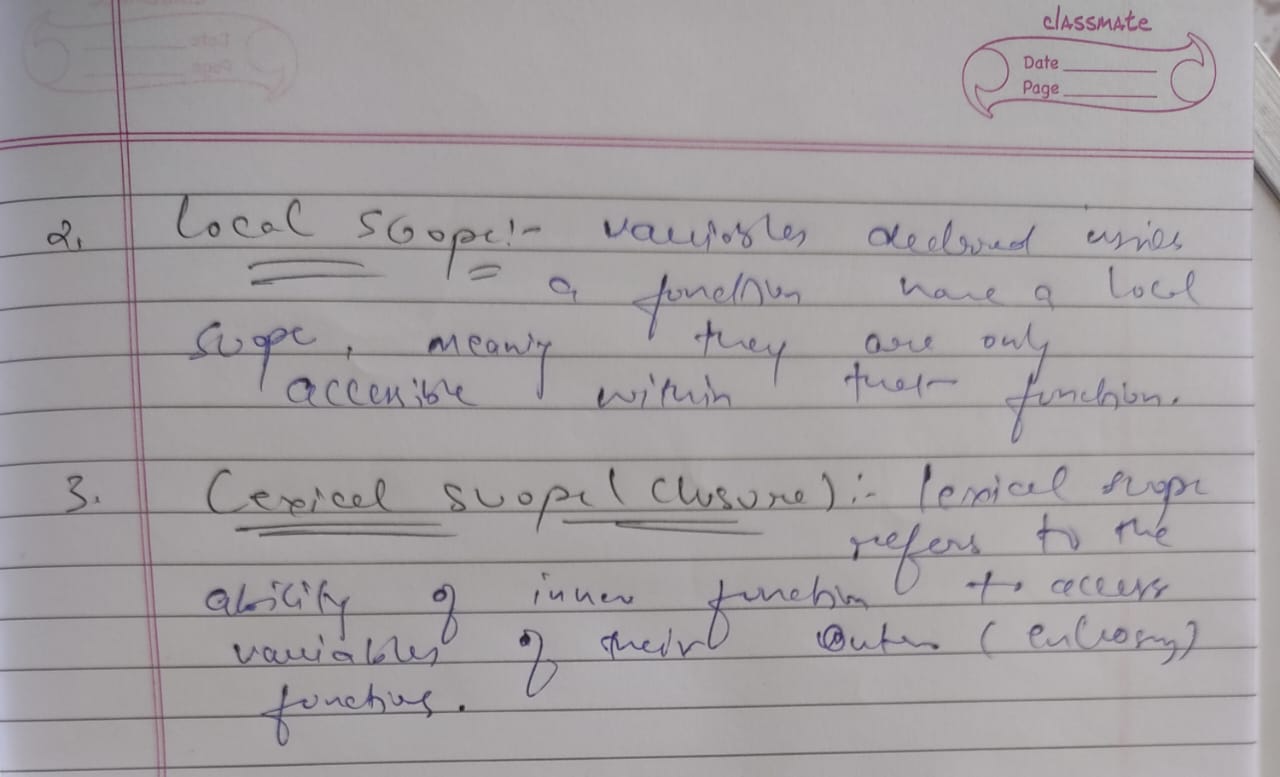 classmate
Date
Page
2. Local Scope:- variables declared
a function have a local
scope, meaning they are only
accessible within that function.
3. Lexical scope (Closure):- lexical scope
refers to the
ability of inner function to access
variables of their outer (enclosing)
functions.